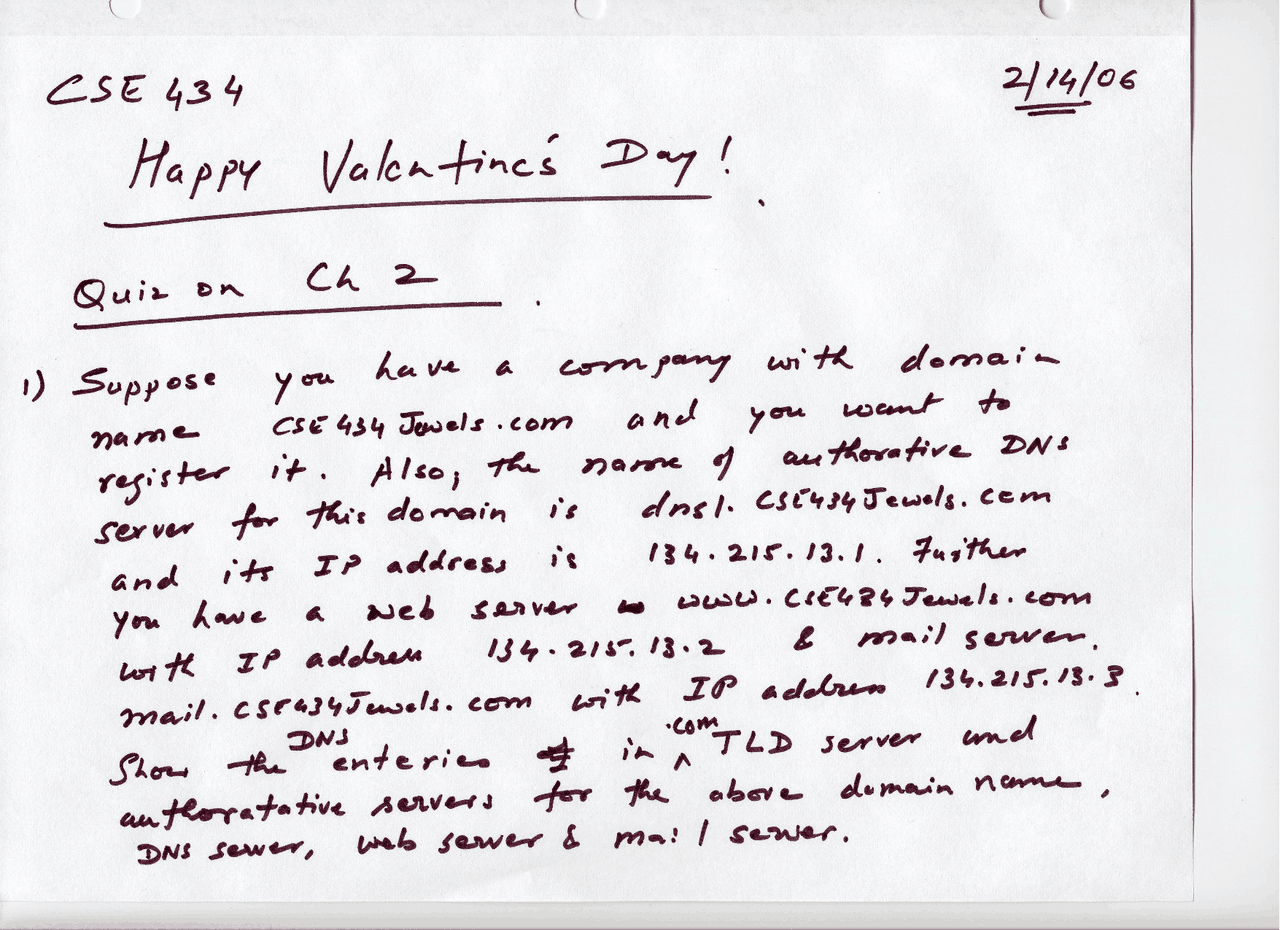 CSE 434
2/14/06
Happy Valentine's Day!
Quiz on Ch 2
1) Suppose you have a company with domain
name CSE434Jewels.com and you want to
register it. Also, the name of authorative DNS
server for this domain is dns1.CSE434Jewels.com
and its IP address is 134.215.13.1. Further
you have a web server www.CSE434Jewels.com
with IP address 134.215.13.2 & mail server.
mail.CSE434Jewels.com with IP address 134.215.13.3.
Show the DNS enteries in .com TLD server and
authoratative servers for the above domain name,
DNS server, web server & mail server.